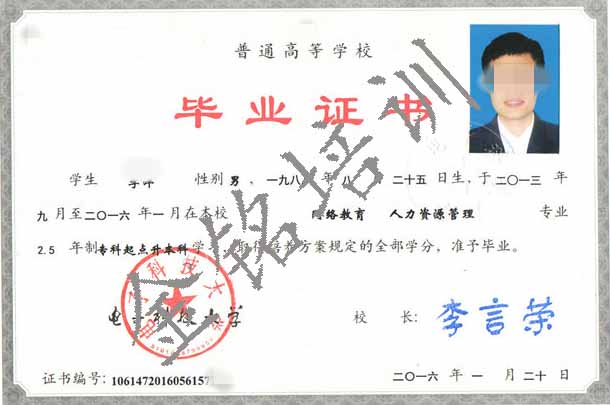 普通高等学校
毕业证书
学生 性别 男、一九八 年 八 二十五日生,于二〇一三 年
九 月至二〇一六 年 一月在本校 网络教育 人力资源管理 专业
2.5 年制专科起点升本科学 方案规定的全部学分,准予毕业。
电子科技大学
电 科技大学 校 长: 李言荣
证书编号: 106147201605615
二〇一六 年 一 月 二十 日
金铭培训